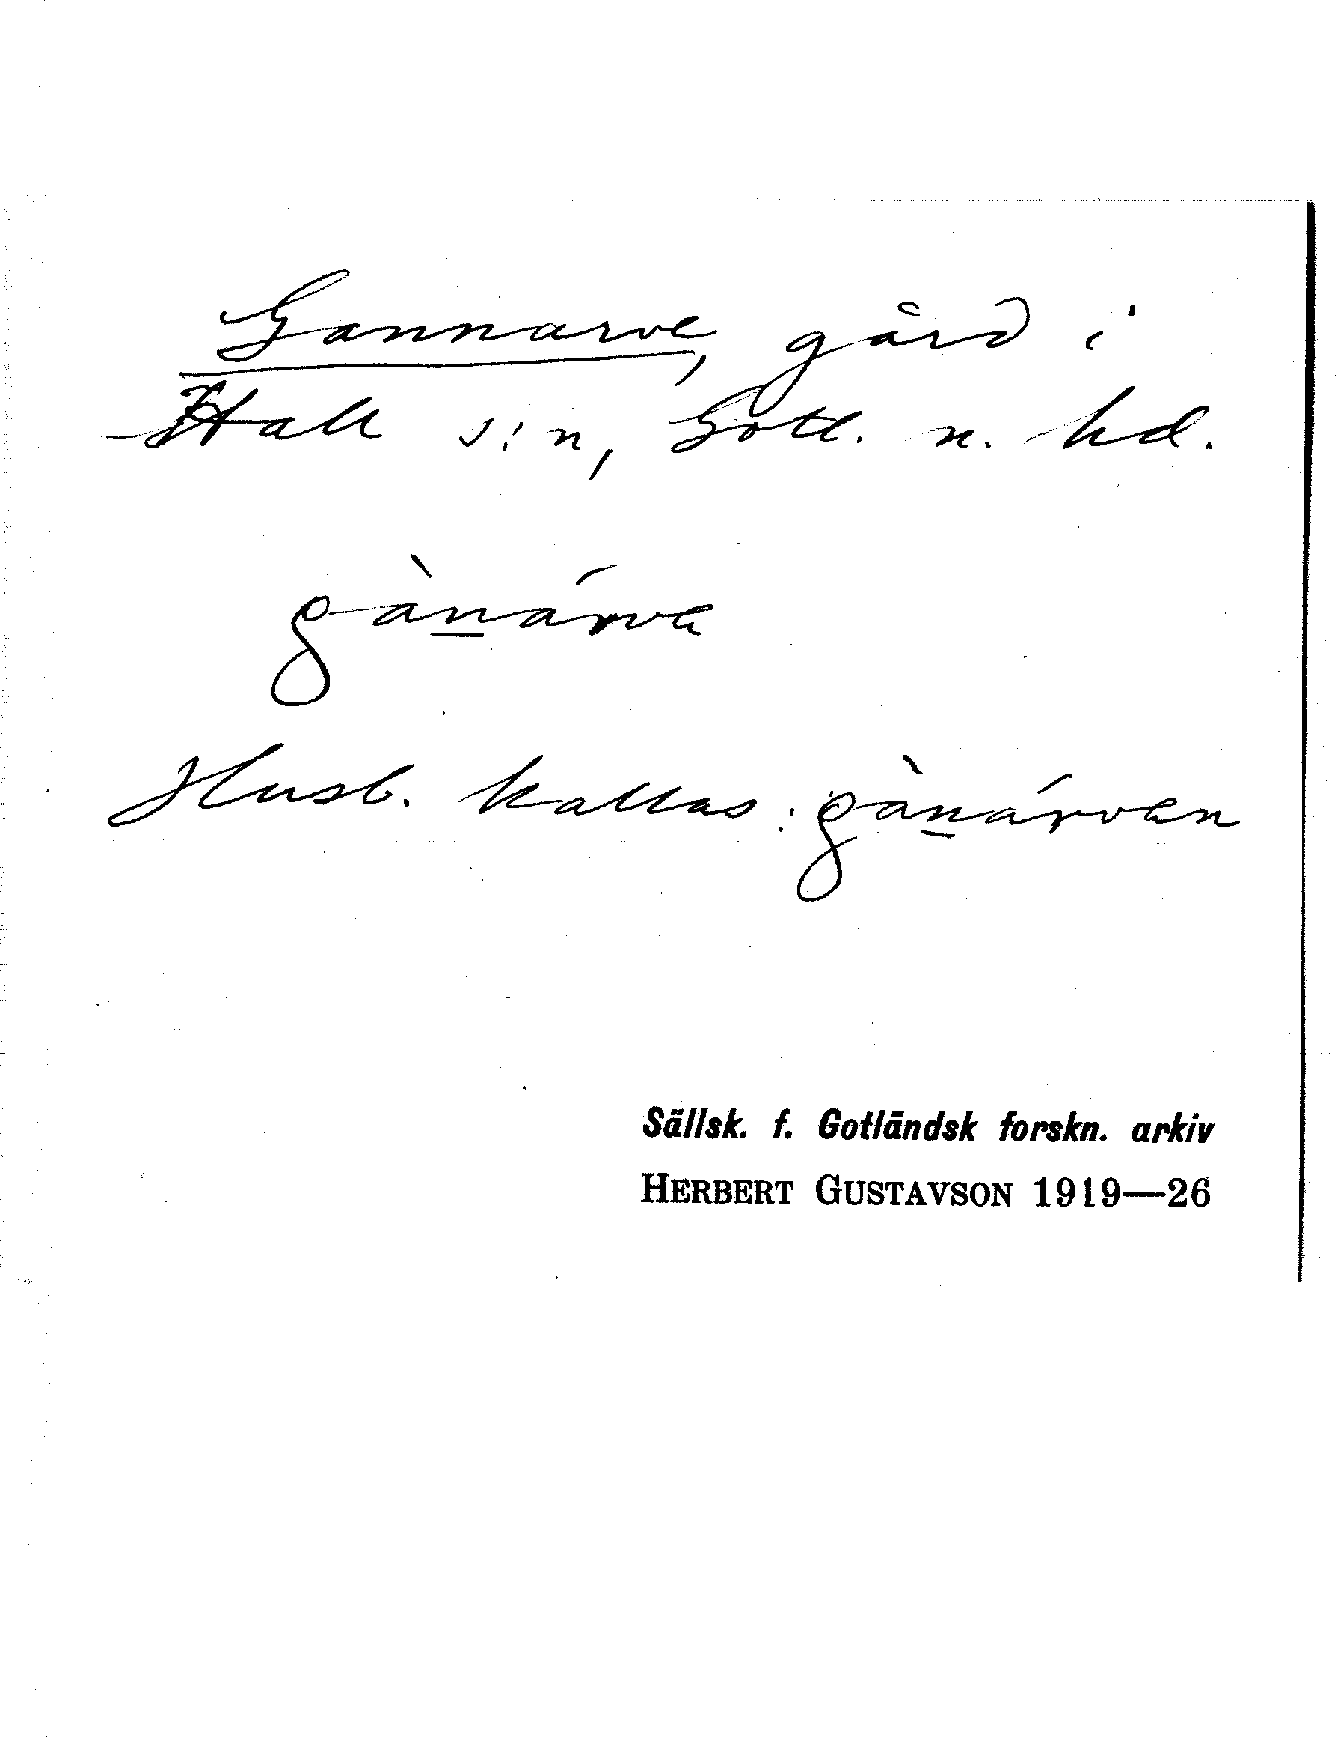 Gannarve, gård i
Hall s:n, Gotl. n. hd.
gàn̲árva
Husb. kallas: gàn̲árvan
Sällsk. f. Gotländsk forskn. arkiv
HERBERT GUSTAVSON 1919—26